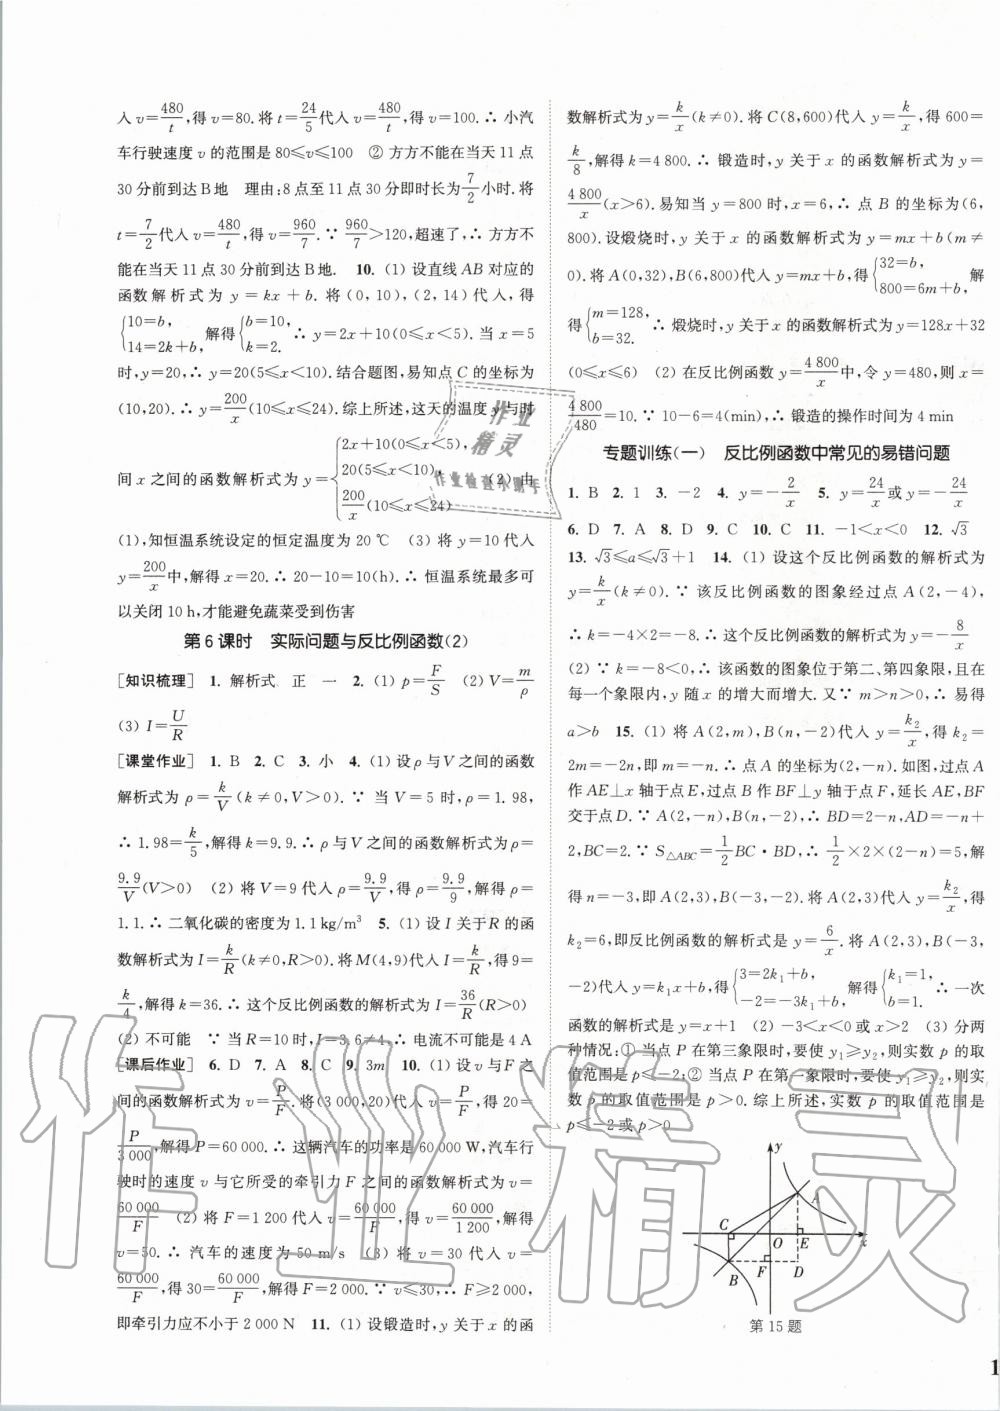 入 v=480/t,得 v=80.将 t=24/5代入 v=480/t,得 v=100.∴ 小汽
车行驶速度 v 的范围是 80≤v≤100　② 方方不能在当天 11 点
30 分前到达 B 地　理由:8 点至 11 点 30 分即时长为7/2小时.将
t=7/2代入 v=480/t,得 v=960/7.∵ 960/7>120,超速了,∴ 方方不
能在当天 11 点 30 分前到达 B 地.　10. (1) 设直线 AB 对应的
函数解析式为 y=kx+b.将(0,10),(2,14)代入,得
{10=b, 14=2k+b, 解得{b=10, k=2. ∴ y=2x+10(0≤x<5).当 x=5
时,y=20,∴ y=20(5≤x<10).结合题图,易知点 C 的坐标为
(10,20).∴ y=200/x(10≤x≤24).综上所述,这天的温度 y 与时
间 x 之间的函数解析式为 y={2x+10(0≤x<5), 20(5≤x<10), 200/x(10≤x≤24)　(2) 由
(1),知恒温系统设定的恒定温度为 20 ℃　(3) 将 y=10 代入
y=200/x中,解得 x=20.∴ 20-10=10(h).∴ 恒温系统最多可
以关闭 10 h,才能避免蔬菜受到伤害
第 6 课时　实际问题与反比例函数(2)
[知识梳理]　1. 解析式　正　一　2. (1) p=F/S　(2) V=m/ρ
(3) I=U/R
[课堂作业]　1. B　2. C　3. 小　4. (1) 设 ρ 与 V 之间的函数
解析式为 ρ=k/V(k≠0,V>0).∵ 当 V=5 时,ρ=1.98,
∴ 1.98=k/5,解得 k=9.9.∴ ρ 与 V 之间的函数解析式为 ρ=
9.9/V(V>0)　(2) 将 V=9 代入 ρ=9.9/V,得 ρ=9.9/9,解得 ρ=
1.1.∴ 二氧化碳的密度为 1.1 kg/m³　5. (1) 设 I 关于 R 的函
数解析式为 I=k/R(k≠0,R>0).将 M(4,9)代入 I=k/R,得 9=
k/4,解得 k=36.∴ 这个反比例函数的解析式为 I=36/R(R>0)
(2) 不可能　∵ 当 R=10 时,I=3.6≠4,∴ 电流不可能是 4 A
[课后作业]　6. D　7. A　8. C　9. 3m　10. (1) 设 v 与 F 之
间的函数解析式为 v=P/F.将(3 000,20)代入 v=P/F,得 20=
P/3 000,解得 P=60 000.∴ 这辆汽车的功率是 60 000 W,汽车行
驶时的速度 v 与它所受的牵引力 F 之间的函数解析式为 v=
60 000/F　(2) 将 F=1 200 代入 v=60 000/F,得 v=60 000/1 200,解得
v=50.∴ 汽车的速度为 50 m/s　(3) 将 v=30 代入 v=
60 000/F,得 30=60 000/F,解得 F=2 000.∵ v≤30,∴ F≥2 000,
即牵引力应不小于 2 000 N　11. (1) 设锻造时,y 关于 x 的函
数解析式为 y=k/x(k≠0).将 C(8,600)代入 y=k/x,得 600=
k/8,解得 k=4 800.∴ 锻造时,y 关于 x 的函数解析式为 y=
4 800/x(x>6).易知当 y=800 时,x=6,∴ 点 B 的坐标为(6,
800).设煅烧时,y 关于 x 的函数解析式为 y=mx+b(m≠
0).将 A(0,32),B(6,800)代入 y=mx+b,得{32=b, 800=6m+b, 解
得{m=128, b=32. ∴ 煅烧时,y 关于 x 的函数解析式为 y=128x+32
(0≤x≤6)　(2) 在反比例函数 y=4 800/x中,令 y=480,则 x=
4 800/480=10.∵ 10-6=4(min),∴ 锻造的操作时间为 4 min
专题训练(一)　反比例函数中常见的易错问题
1. B　2. 1　3. -2　4. y=-2/x　5. y=24/x或 y=-24/x
6. D　7. A　8. D　9. C　10. C　11. -1<x<0　12. √3
13. √3≤a≤√3+1　14. (1) 设这个反比例函数的解析式为
y=k/x(k≠0).∵ 该反比例函数的图象经过点 A(2,-4),
∴ k=-4×2=-8.∴ 这个反比例函数的解析式为 y=-8/x
(2) ∵ k=-8<0,∴ 该函数的图象位于第二、第四象限,且在
每一个象限内,y 随 x 的增大而增大.又∵ m>n>0,∴ 易得
a>b　15. (1) 将 A(2,m),B(n,-2)代入 y=k₂/x,得 k₂=
2m=-2n,即 m=-n.∴ 点 A 的坐标为(2,-n).如图,过点 A
作 AE⊥x 轴于点 E,过点 B 作 BF⊥y 轴于点 F,延长 AE,BF
交于点 D.∵ A(2,-n),B(n,-2),∴ BD=2-n,AD=-n+
2,BC=2.∵ S△ABC=1/2BC·BD,∴ 1/2×2×(2-n)=5,解
得 n=-3,即 A(2,3),B(-3,-2).将 A(2,3)代入 y=k₂/x,得
k₂=6,即反比例函数的解析式是 y=6/x.将 A(2,3),B(-3,
-2)代入 y=k₁x+b,得{3=2k₁+b, -2=-3k₁+b, 解得{k₁=1, b=1. ∴ 一次
函数的解析式是 y=x+1　(2) -3<x<0 或 x>2　(3) 分两
种情况:① 当点 P 在第三象限时,要使 y₁≥y₂,则实数 p 的取
值范围是 p≤-2;② 当点 P 在第一象限时,要使 y₁≥y₂,则实
数 p 的取值范围是 p>0.综上所述,实数 p 的取值范围是
p≤-2 或 p>0
y
A
C
O
E
x
B
F
D
第 15 题
1
作业精灵
作业
精灵
作业检查小助手